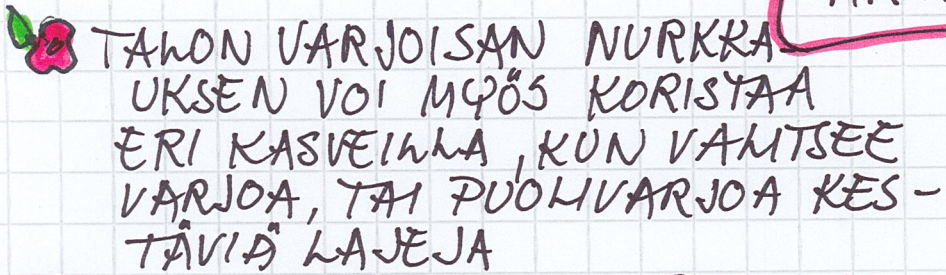 TALON VARJOISAN NURKKA
UKSEN VOI MYÖS KORISTAA
ERI KASVEILLA, KUN VALITSEE
VARJOA, TAI PUOLIVARJOA KES-
TÄVIÄ LAJEJA